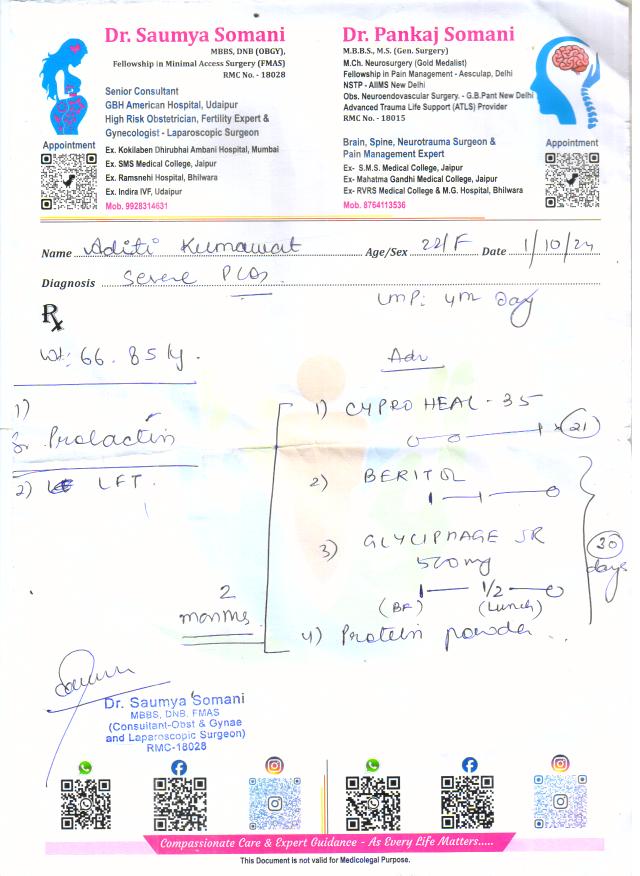 Dr. Saumya Somani
MBBS, DNB (OBGY),
Fellowship in Minimal Access Surgery (FMAS)
RMC No. - 18028
Senior Consultant
GBH American Hospital, Udaipur
High Risk Obstetrician, Fertility Expert &
Gynecologist - Laparoscopic Surgeon
Ex. Kokilaben Dhirubhai Ambani Hospital, Mumbai
Ex. SMS Medical College, Jaipur
Ex. Ramsnehi Hospital, Bhilwara
Ex. Indira IVF, Udaipur
Mob. 9928314631
Appointment
Dr. Pankaj Somani
M.B.B.S., M.S. (Gen. Surgery)
M.Ch. Neurosurgery (Gold Medalist)
Fellowship in Pain Management - Aesculap, Delhi
NSTP - AIIMS New Delhi
Obs. Neuroendovascular Surgery. - G.B.Pant New Delhi
Advanced Trauma Life Support (ATLS) Provider
RMC No. - 18015
Brain, Spine, Neurotrauma Surgeon &
Pain Management Expert
Ex- S.M.S. Medical College, Jaipur
Ex- Mahatma Gandhi Medical College, Jaipur
Ex- RVRS Medical College & M.G. Hospital, Bhilwara
Mob. 8764113536
Appointment
Name Aditi Kumawat Age/Sex 22/F Date 1/10/24
Diagnosis Severe PCOS
LMP: 4m day
Rx
Wt: 66.85 kg.
Adv
1)
S. Prolactin
2) LFT.
1) CYPRO HEAL - 35
x 21
2) BERITOL
3) GLYCIPHAGE SR
500mg
1/2
(BF) (Lunch)
30 days
4) Protein powder
2 months
Dr. Saumya Somani
MBBS, DNB, FMAS
(Consultant-Obst & Gynae
and Laparoscopic Surgeon)
RMC-18028
Compassionate Care & Expert Guidance - As Every Life Matters.....
This Document is not valid for Medicolegal Purpose.